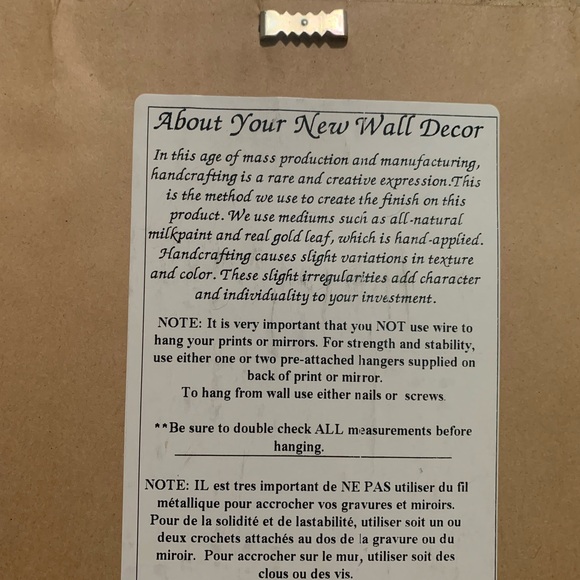 About Your New Wall Decor
In this age of mass production and manufacturing,
handcrafting is a rare and creative expression.This
is the method we use to create the finish on this
product. We use mediums such as all-natural
milkpaint and real gold leaf, which is hand-applied.
Handcrafting causes slight variations in texture
and color. These slight irregularities add character
and individuality to your investment.
NOTE: It is very important that you NOT use wire to
hang your prints or mirrors. For strength and stability,
use either one or two pre-attached hangers supplied on
back of print or mirror.
To hang from wall use either nails or screws.
**Be sure to double check ALL measurements before
hanging.
NOTE: IL est tres important de NE PAS utiliser du fil
métallique pour accrocher vos gravures et miroirs.
Pour de la solidité et de lastabilité, utiliser soit un ou
deux crochets attachés au dos de la gravure ou du
miroir. Pour accrocher sur le mur, utiliser soit des
clous ou des vis.